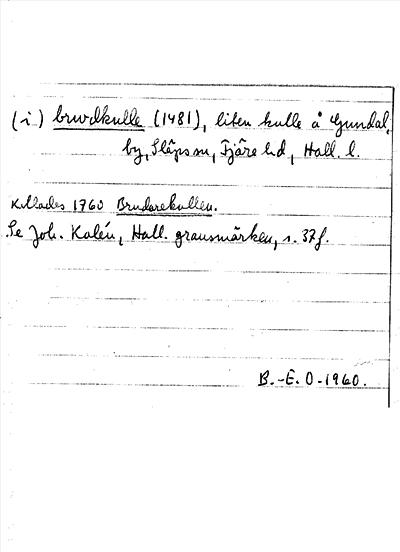 (i) brwdkulle (1481), liten kulle å Gundal,
by, Släps sn, Fjäre hd, Hall. l.
Kallades 1760 Brudarekullen.
Se Joh. Kalén, Hall. gränsmärken, s. 37f.
B.-E. O. 1960.